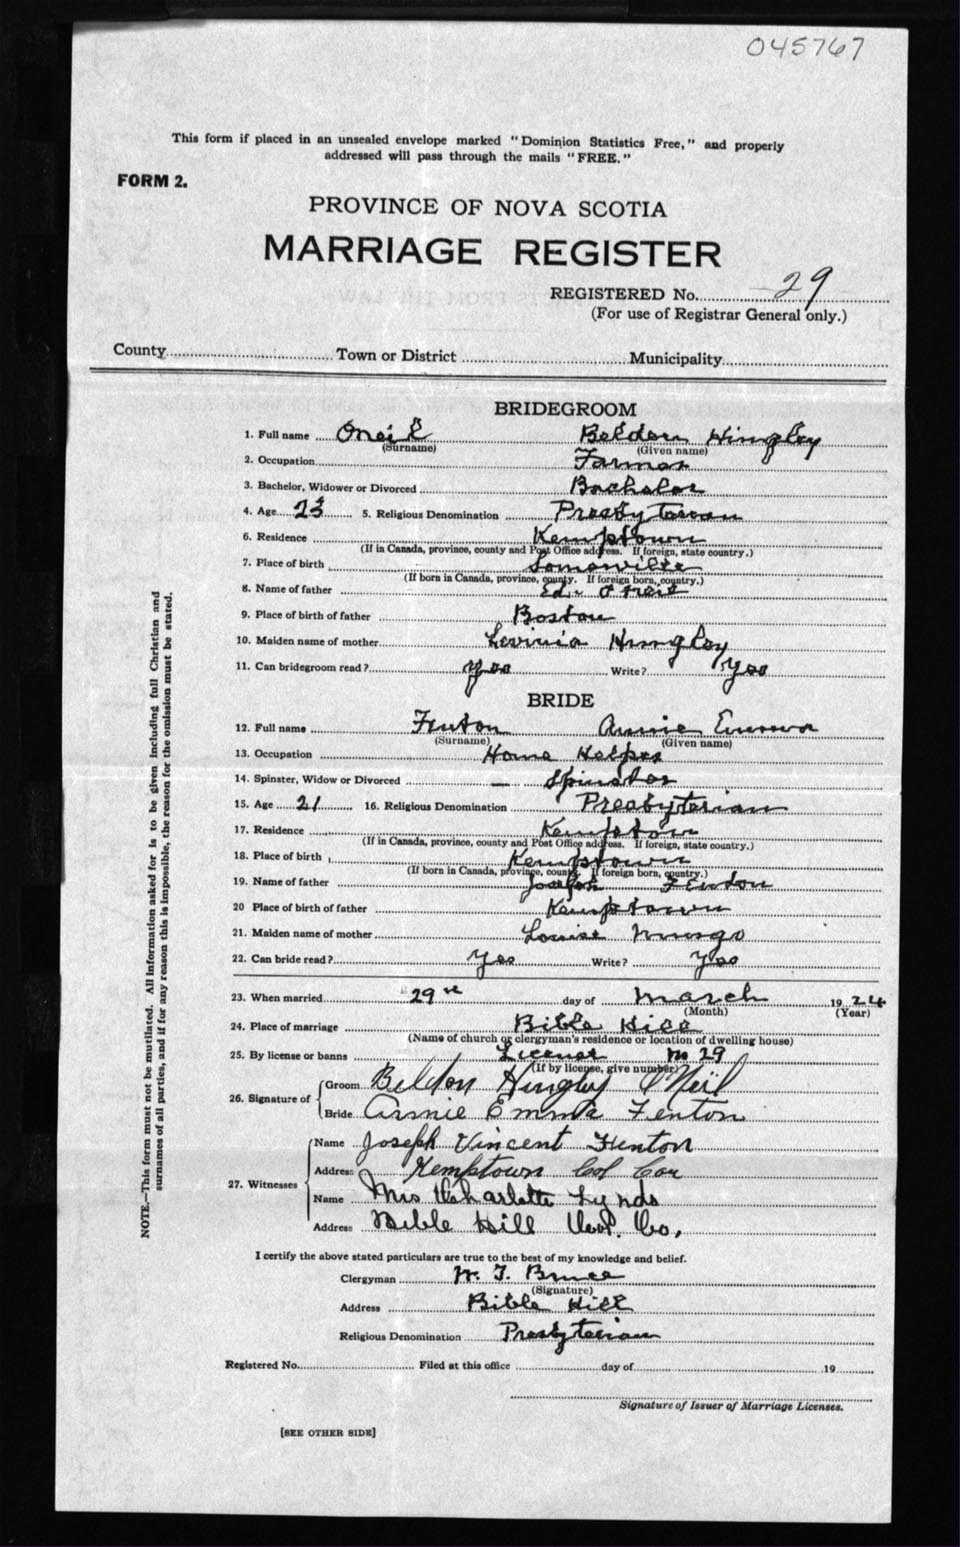 045767
This form if placed in an unsealed envelope marked "Dominion Statistics Free," and properly
addressed will pass through the mails "FREE."
FORM 2.
PROVINCE OF NOVA SCOTIA
MARRIAGE REGISTER
REGISTERED No. 29
(For use of Registrar General only.)
County Town or District Municipality
BRIDEGROOM
1. Full name Oneil Beldon Hingley
(Surname) (Given name)
2. Occupation Farmer
3. Bachelor, Widower or Divorced Bachelor
4. Age 23 5. Religious Denomination Presbyterian
6. Residence Kemptown
(If in Canada, province, county and Post Office address. If foreign, state country.)
7. Place of birth Somerville
(If born in Canada, province, county. If foreign born, country.)
8. Name of father Ed. O'Neil
9. Place of birth of father Boston
10. Maiden name of mother Hingley
11. Can bridegroom read? Yes Write? Yes
BRIDE
12. Full name Fenton Annie Emma
(Surname) (Given name)
13. Occupation Home Helper
14. Spinster, Widow or Divorced Spinster
15. Age 21 16. Religious Denomination Presbyterian
17. Residence Kemptown
(If in Canada, province, county and Post Office address. If foreign, state country.)
18. Place of birth Kemptown
(If born in Canada, province, county. If foreign born, country.)
19. Name of father Joseph Fenton
20 Place of birth of father Kemptown
21. Maiden name of mother Louise Mungo
22. Can bride read? Yes Write? Yes
23. When married 29th day of March 1924
(Month) (Year)
24. Place of marriage Bible Hill
(Name of church or clergyman's residence or location of dwelling house)
25. By license or banns License No 29
(If by license, give number)
26. Signature of Groom Beldon Hingley O'Neil
Bride Annie Emma Fenton
27. Witnesses Name Joseph Vincent Fenton
Address Kemptown Col Co
Name Mrs Charlotte Lynds
Address Bible Hill Col. Co.
I certify the above stated particulars are true to the best of my knowledge and belief.
Clergyman W. T. Bruce
(Signature)
Address Bible Hill
Religious Denomination Presbyterian
Registered No. Filed at this office day of 19
Signature of Issuer of Marriage Licenses.
[SEE OTHER SIDE]
NOTE.—This form must not be mutilated. All information asked for is to be given including full Christian and
surnames of all parties, and if for any reason this is impossible, the reason for the omission must be stated.